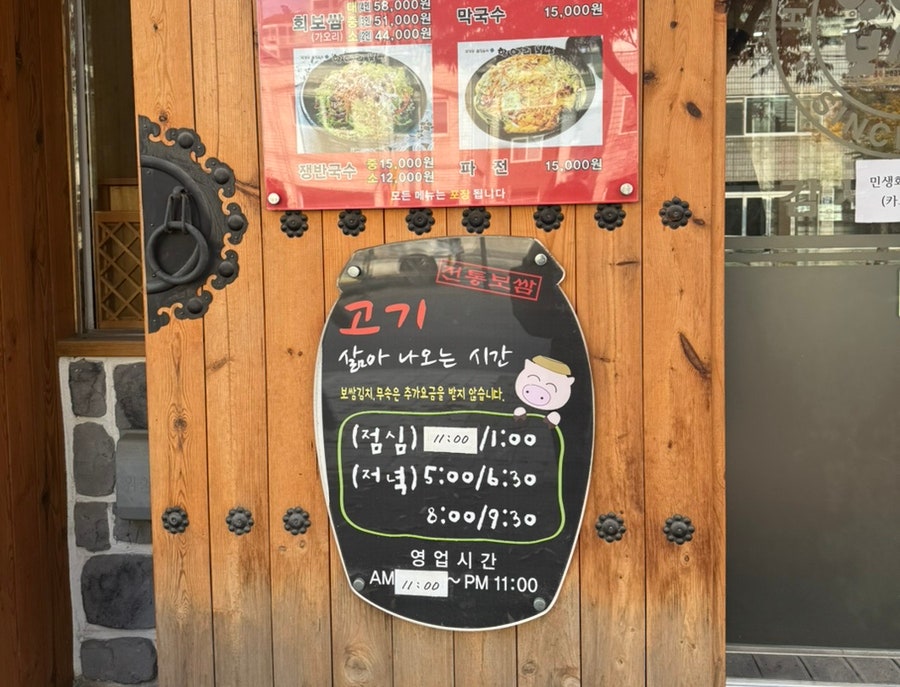 대 58,000원
회보쌈 중 51,000원
(가오리) 소 44,000원
막국수 15,000원
쟁반국수 중 15,000원
소 12,000원
파 전 15,000원
모든 메뉴는 포장 됩니다
전통보쌈
고기
삶아 나오는 시간
보쌈김치, 무속은 추가요금을 받지 않습니다.
(점심) 11:00/1:00
(저녁) 5:00/6:30
8:00/9:30
영업시간
AM 11:00~PM 11:00
SINC
민생회
(카